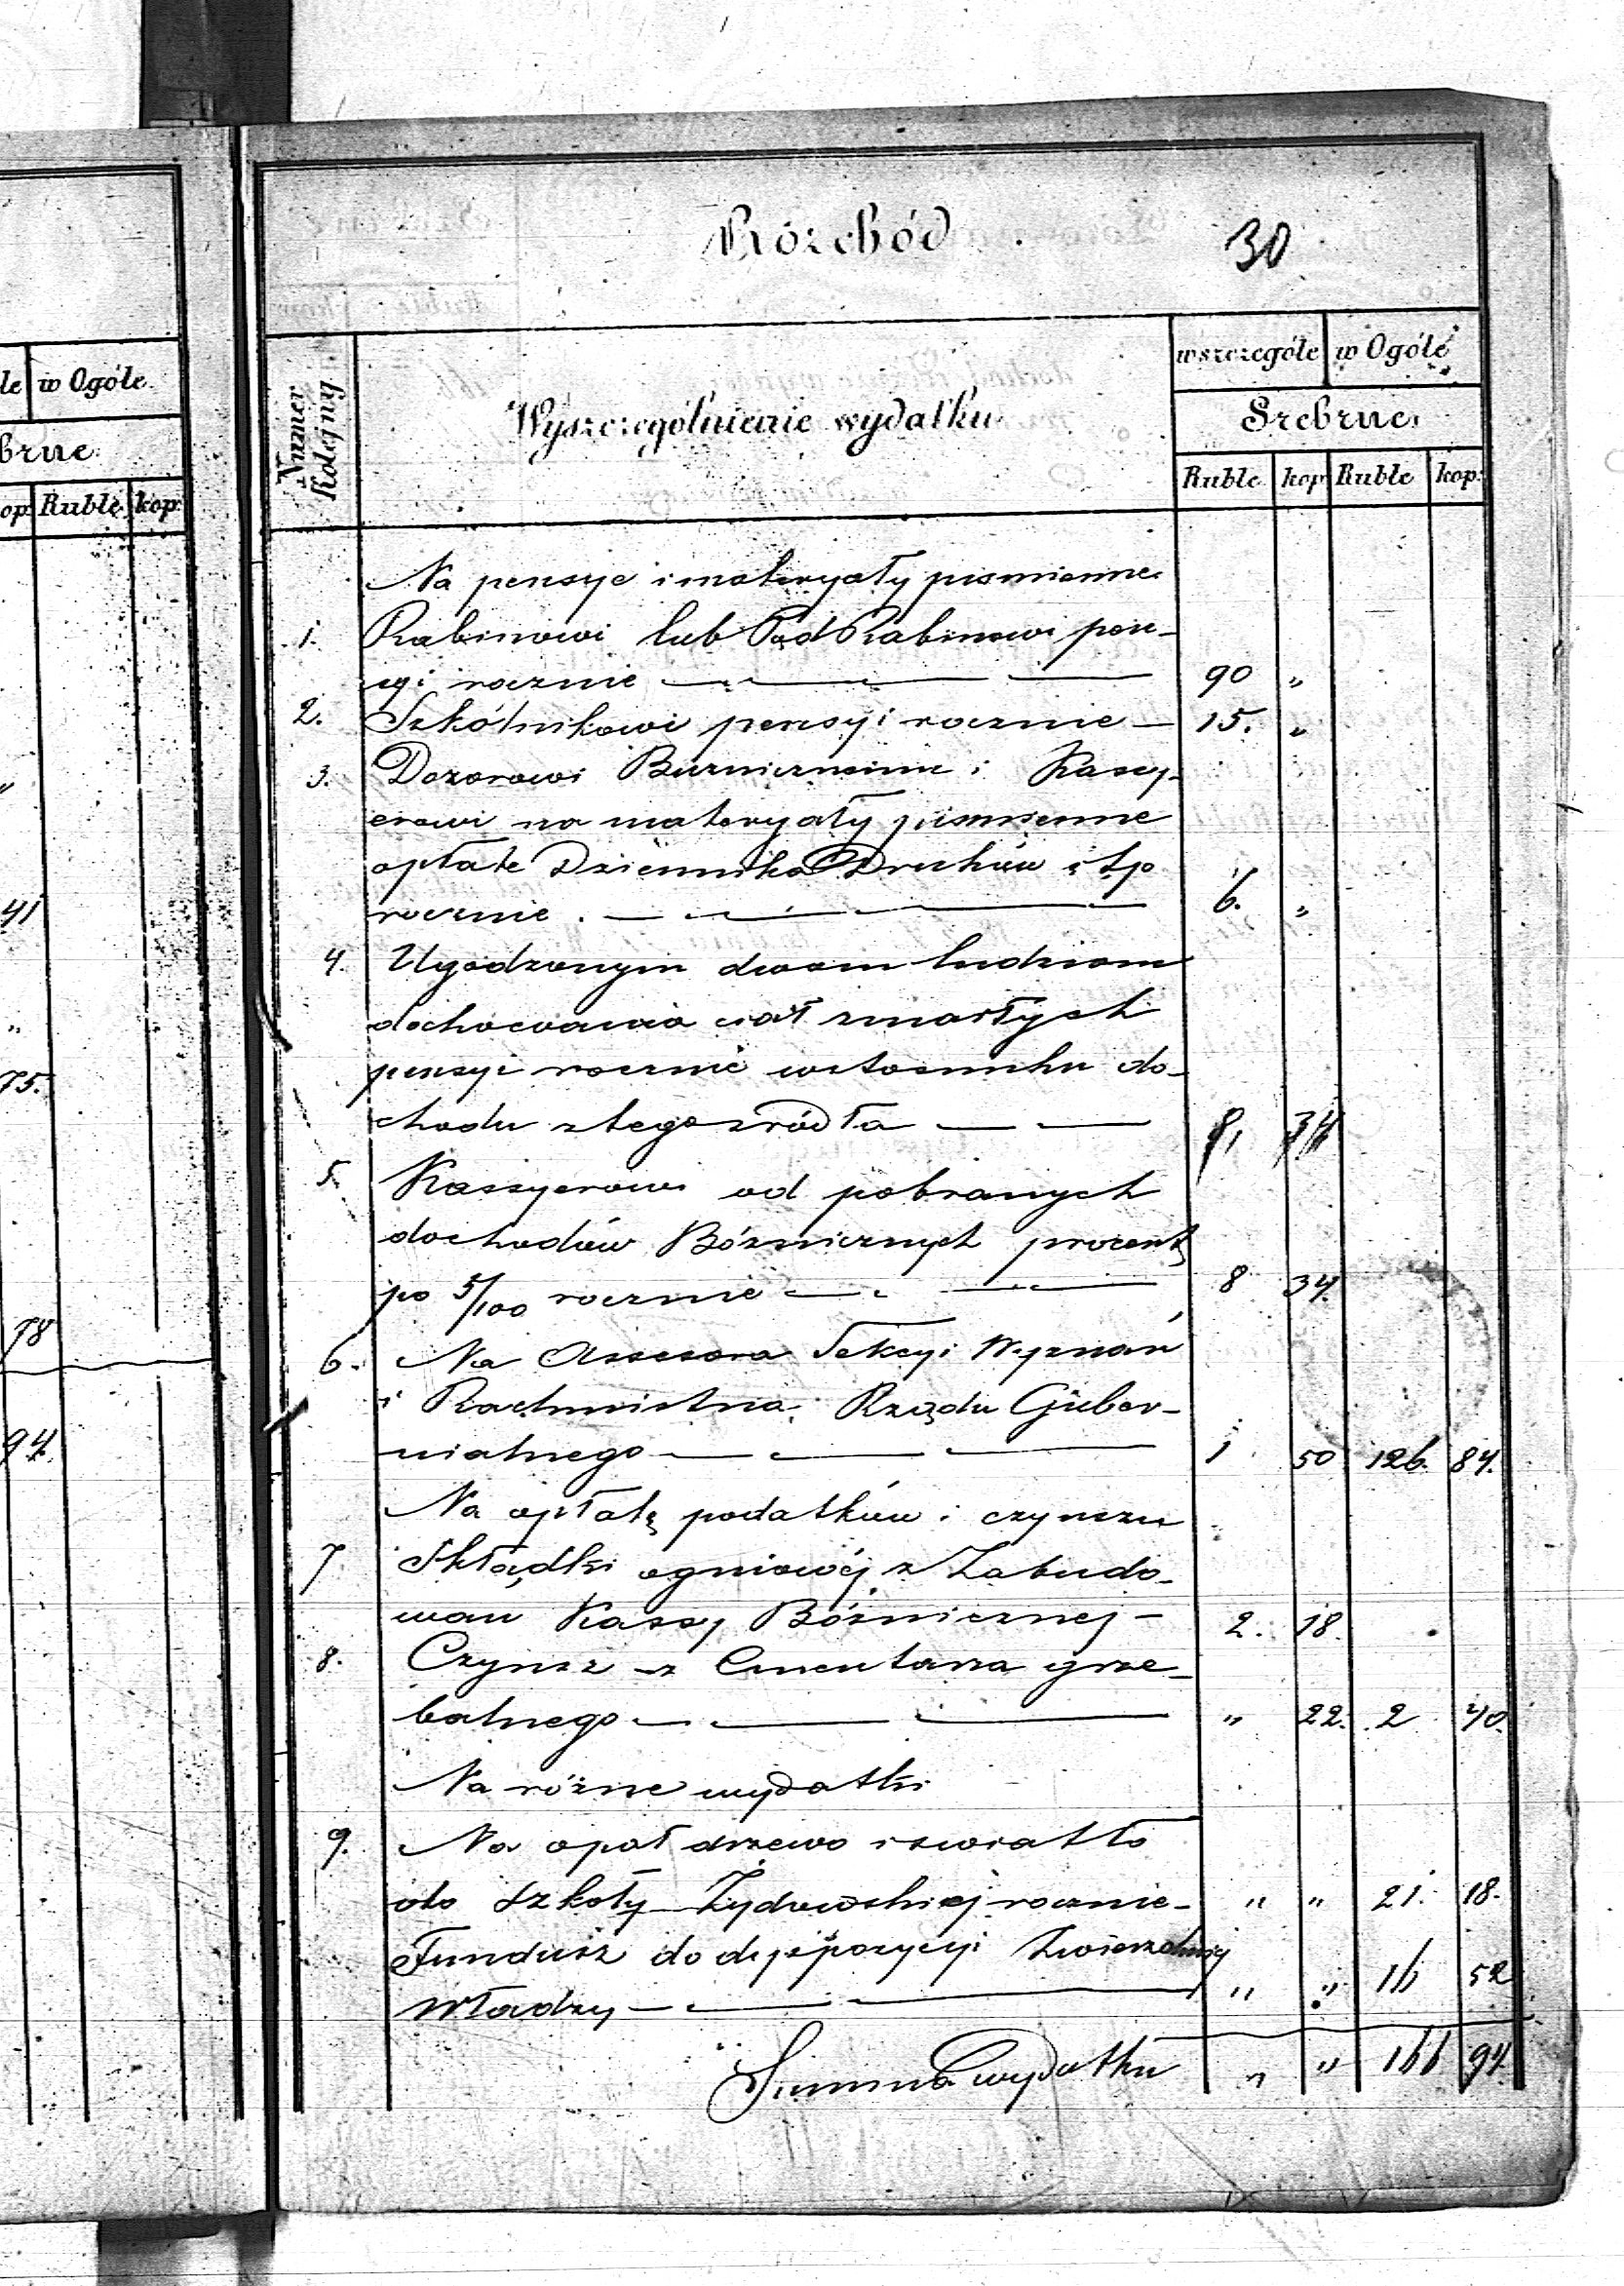 le w Ogóle.
brne
op: Ruble kop:
"
41
"
75.
78
94.
Rozchód
30
Numer Kolejny
Wyszczególnienie wydatku
w szczególe w Ogóle
Srebrne
Ruble kop Ruble kop:
Na pensye i materyały pismienne
1. Rabinowi lub PodRabinowi pen-
syi rocznie 90 "
2. Szkólnikowi pensyi rocznie 15. "
3. Dozorowi Bużniczneimu i Kassy-
erowi na materyały pismienne
opłate Dziennika Druków i tp
rocznie . 6. "
4. Ugodzonym dwom ludziom
dochowania ciał zmarłych
pensyi rocznie wstosunku do-
chodu z tego zródła 8, 34
5. Kassyerowi od pobranych
dochodów Bóżnicznych procent
po 5/100 rocznie 8 34.
6. Na Assesora Sekcyi Wyznań
i Rachmistrza Rządu Guber-
nialnego 1 50 126. 84.
Na opłatę podatków i czynszu
7 Składki ogniowéj z Zabudo-
wań Kassy Bóżnicznej 2. 18.
8. Czynsz z Cmentarza grze-
balnego " 22. 2 40.
Na różne wydatki
9. Na opał drzewo i swiatło
do Szkoły Żydowskiej rocznie " " 21. 18.
Fundusz do dyspozycyi Zwierzchniej
Władzy " " 16 52
Summa wydatku " " 166 94.